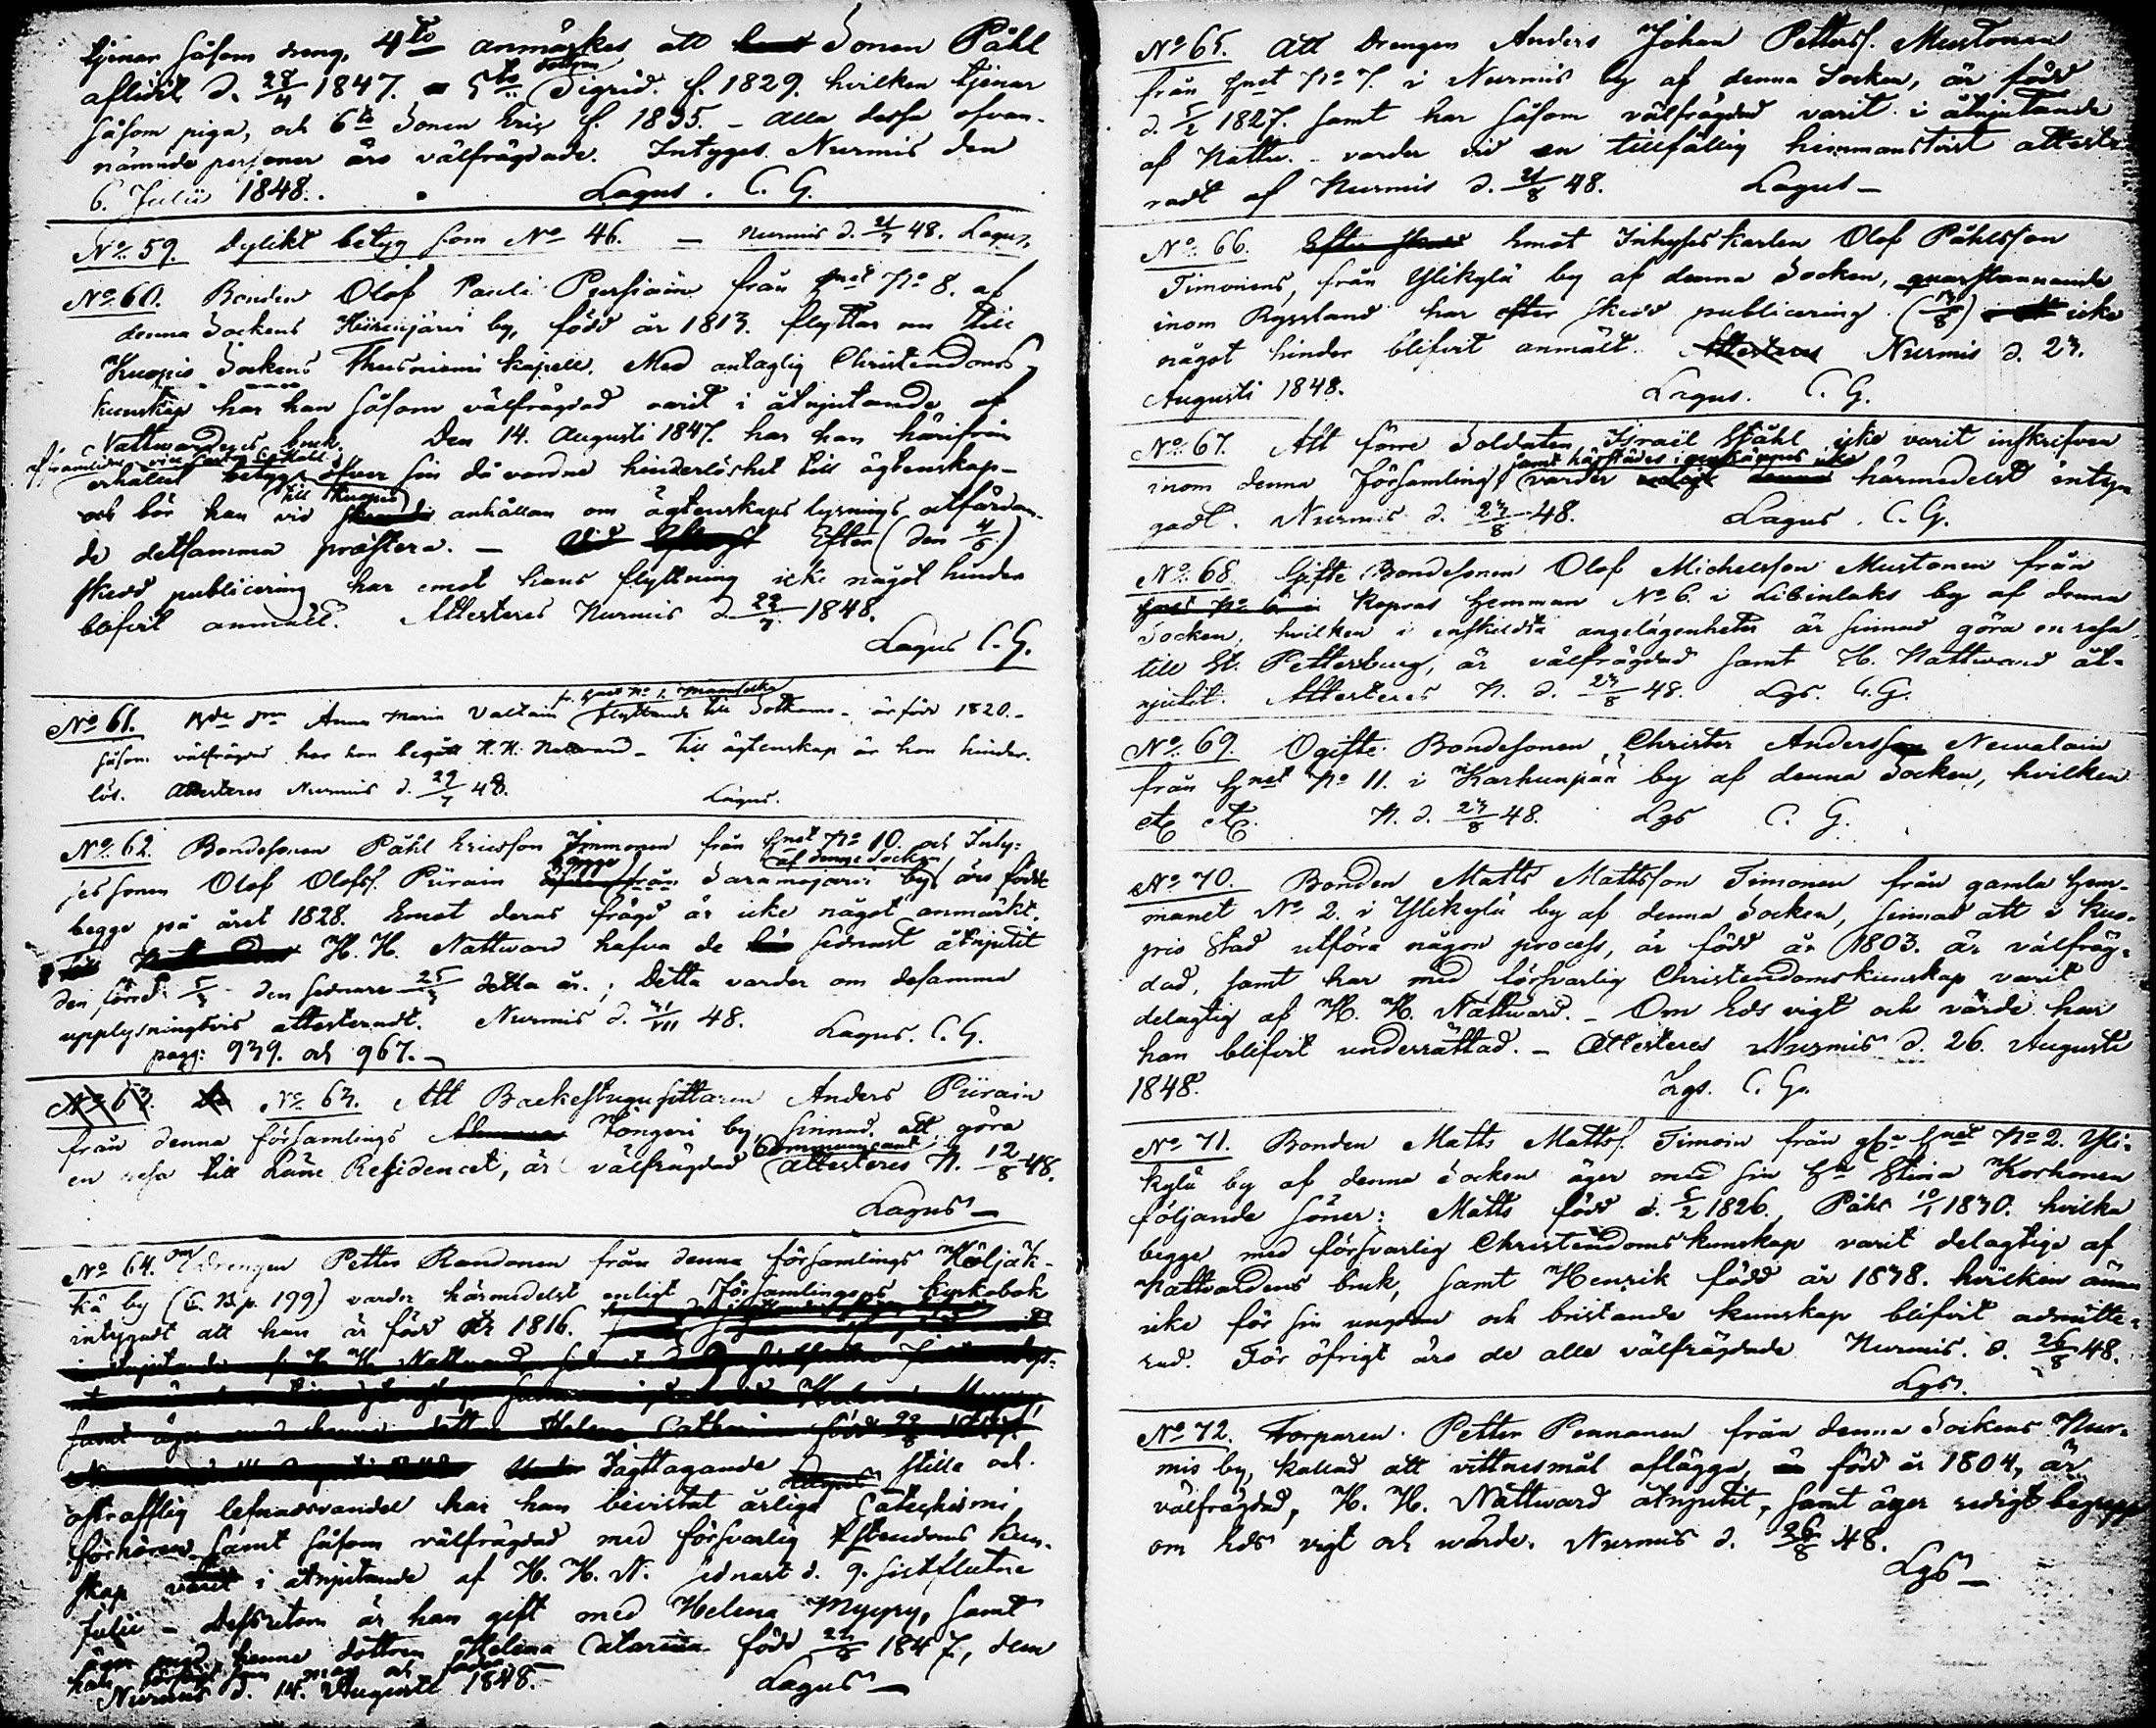 tjenar såsom dreng, 4to anmärkes att Sonen Påhl
aflidit d. 28/4 1847. 5to dottren Sigrid. f. 1829. hvilken tjenar
såsom piga, och 6te Sonen Eric f. 1835. – Alla dessa ofvan-
nämnde personer äro välfrägdade. Intyges Nurmis den
6. Julii 1848. Lagus. C. G.
No 59. dylikt betyg som No 46. – Nurmis d. 21/7 48. Lagus.
No 60. Bonden Olof Pauli Pursiain från hmet No 8. af
denna Sockens Hiirenjärvi by, född år 1813. flyttar nu till
Kuopio Sockens Thusniemi kapell. Med antaglig Christendoms-
kunskap har han såsom välfrägdad varit i åtnjutande af
Nattwardens bruk. Den 14. Augusti 1847. har han härifrån
erhållit betyg öfver sin då vordne hinderlöshet till ägtenskap –
och bör han vid till Kuopio anhållan om ägtenskaps lysnings utfärdan-
de detsamma præstera. – Efter (den 4/6)
skedd publicering har emot hans flyttning icke något hinder
blifvit anmält. Attesteres Nurmis d. 22/7 1848.
Lagus C. G.
No 61. Anna Maria Valtain flyttande till Sotkamo – är född 1820. –
såsom välfrägdad har hon begått H. H. Nattward – Till ägtenskap är hon hinder-
lös. Attesteres Nurmis d. 29/7 48. Lagus.
No 62. Bondesonen Påhl Ericsson Immonen från hmet No 10. och Inhy-
ses sonen Olof Olofss. Piirain begge från Saramojärvi by af denna Socken äro födde
begge på året 1828. Emot deras frägd är icke något anmärkt.
H. H. Nattward hafva de sednast åtnjutit
den förre den sednare detta år.; Detta varder om desamma
upplysningsvis attesteradt. Nurmis d. 31/VII 48. Lagus. C. G.
pagg: 939. och 967. –
No 63. No 63. Att Backestugusittaren Anders Piirain
från denna församlings Höngeri by, sinnad att göra
en resa till Läne Residencet, är välfrägdad Communicant attesteres N. 12/8 48.
Lagus –
No 64. om Drengen Petter Randonen från denna församlings Höljäk-
kä by (C. B. p. 199) varder härmedelst enligt Församlingens Kyrkobok
intygadt att han är född år 1816.
Iagttagande stilla och
ostrafflig lefnadsvandel har han bivistat årliga Catechismi
förhören samt såsom välfrägdad med försvarlig Xstendoms kun-
skap varit i åtnjutande af H. H. N. sednast d. 9. sistflutne
Julii – Dessutom är han gift med Helena Myyry, samt
äger med henne dottren Helena Catarina född 22/8 1847, dem
Nurmis d. 14. Augusti 1848. – Lagus –
No 65. Att Drengen Anders Johan Petterss. Mustonen
från hmet No 7. i Nurmis by af denna Socken, är född
d. 5/2 1827. samt har såsom välfrägdad varit i åtnjutande
af Nattw. – varder vid en tillfällig hemmanstvist atteste-
radt af Nurmis d. 21/8 48. Lagus –
No 66. Emot Inhyses karlen Olof Påhlsson
Timonens, från Ylikylä by af denna Socken, quarstannande
inom Ryssland har efter skedd publicering (13/8) icke
något hinder blifvit anmält. Nurmis d. 23.
Augusti 1848. Lagus. C. G.
No 67. Att förre Soldaten Israël Ståhl icke varit inskrifven
inom denna Församling, varder härmedelst intyg-
gadt. Nurmis d. 23/8 48. Lagus. C. G.
No 68. Gifte Bondesonen Olof Michelsson Mustonen från
Kopras hemman No 6. i Libinlaks by af denna
Socken, hvilken i enskildta angelägenheter är sinnad göra en resa
till St. Petterburg, är välfrägdad samt H. Nattward åt-
njutit. Attesteres N. d. 23/8 48. Lgs. C. G.
No 69. Ogifte Bondesonen Christer Andersson Nevalain
från hmet No 11. i Karhunpää by af denna Socken, hvilken
etc etc. N. d. 23/8 48. Lgs C. G.
No 70. Bonden Matts Mattsson Timonen från gamla hem-
manet No 2. i Ylikylä by af denna Socken, sinnad att i Kuo-
pio Stad utföra någon process, är född år 1803. är välfräg-
dad, samt har med försvarlig Christendomskunskap varit
delagtig af H. H. Nattward. – Om Eds vigt och värde har
han blifvit underrättad. – Attesteres Nurmis d. 26. Augusti
1848. Lgs. C. G.
No 71. Bonden Matts Mattss. Timoin från gla hmet No 2. Yli-
kylä by af denna Socken äger med sin Hu Stina Korhonen
följande söner: Matts född d. 5/2 1826., Påhl 10/1 1830. hvilka
begge med försvarlig Christendoms kunskap varit delagtige af
Nattvardens bruk, samt Henrik född år 1838. hvilken ännu
icke för sin ungdom och bristande kunskap blifvit admitte-
rad. För öfrigt äro de alle välfrägdade Nurmis. d. 26/8 48.
Lgs.
No 72. Torparen Petter Pennanen från denna Sockens Nur-
mis by, kallad att vittnesmål aflägga, född år 1804, är
välfrägdad, H. H. Nattward åtnjutit, samt äger redigt begrepp
om Eds vigt och wärde. Nurmis d. 26/8 48.
Lgs –